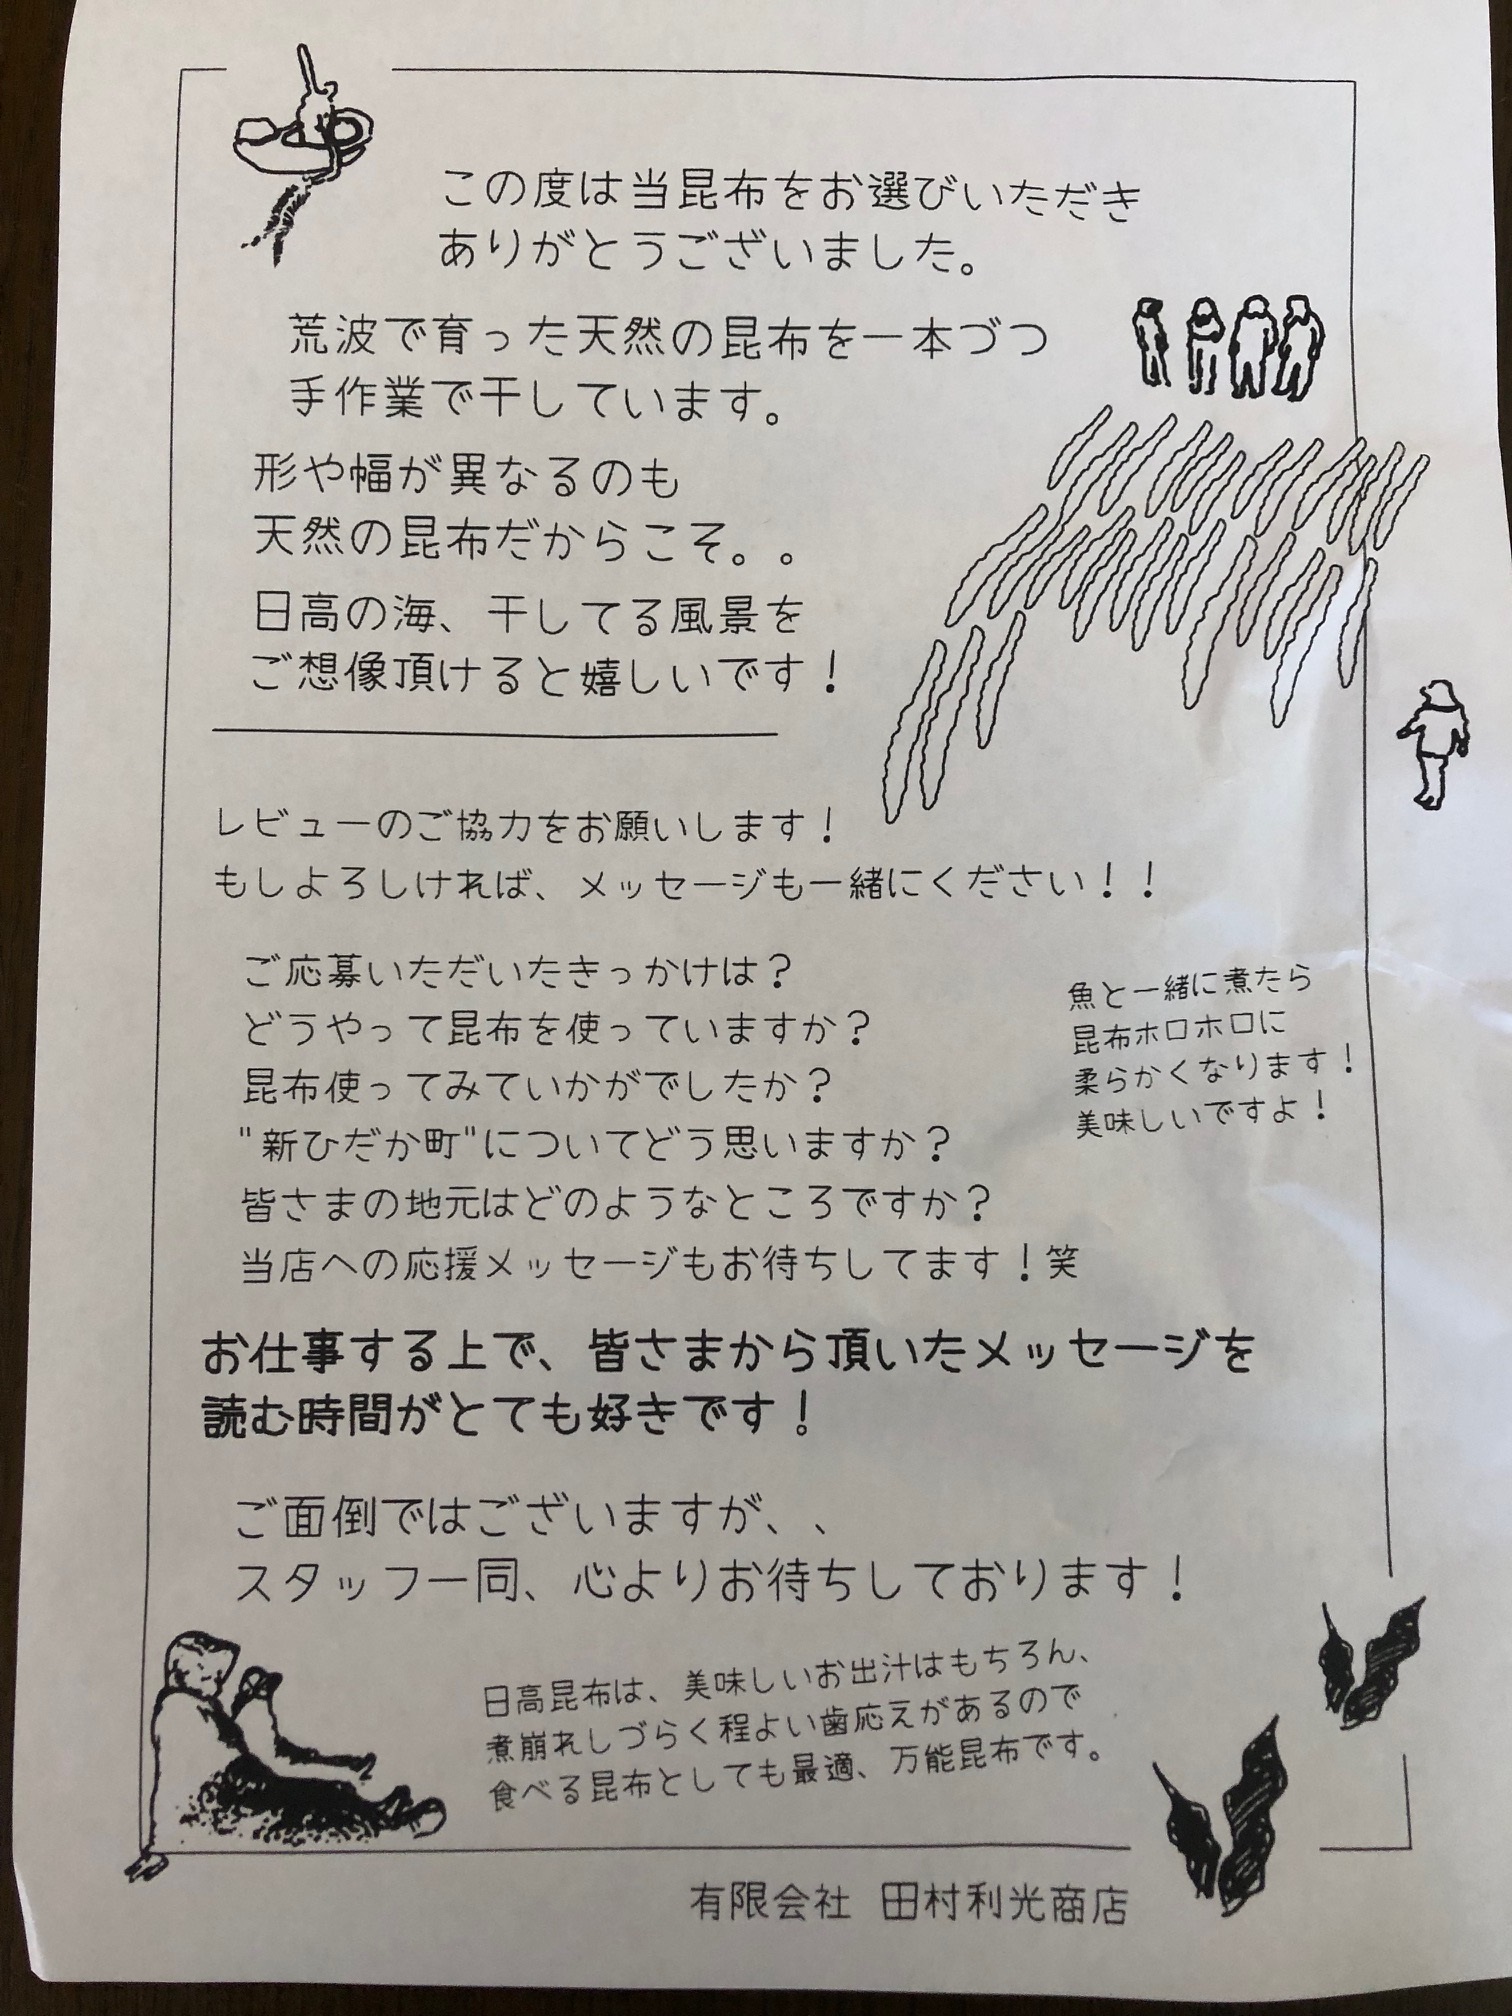 この度は当昆布をお選びいただき
ありがとうございました。
荒波で育った天然の昆布を一本づつ
手作業で干しています。
形や幅が異なるのも
天然の昆布だからこそ。。
日高の海、干してる風景を
ご想像頂けると嬉しいです！
レビューのご協力をお願いします！
もしよろしければ、メッセージも一緒にください！！
ご応募いただいたきっかけは？
どうやって昆布を使っていますか？
昆布使ってみていかがでしたか？
"新ひだか町"についてどう思いますか？
皆さまの地元はどのようなところですか？
当店への応援メッセージもお待ちしてます！笑
魚と一緒に煮たら
昆布ホロホロに
柔らかくなります！
美味しいですよ！
お仕事する上で、皆さまから頂いたメッセージを
読む時間がとても好きです！
ご面倒ではございますが、、
スタッフ一同、心よりお待ちしております！
日高昆布は、美味しいお出汁はもちろん、
煮崩れしづらく程よい歯応えがあるので
食べる昆布としても最適、万能昆布です。
有限会社 田村利光商店